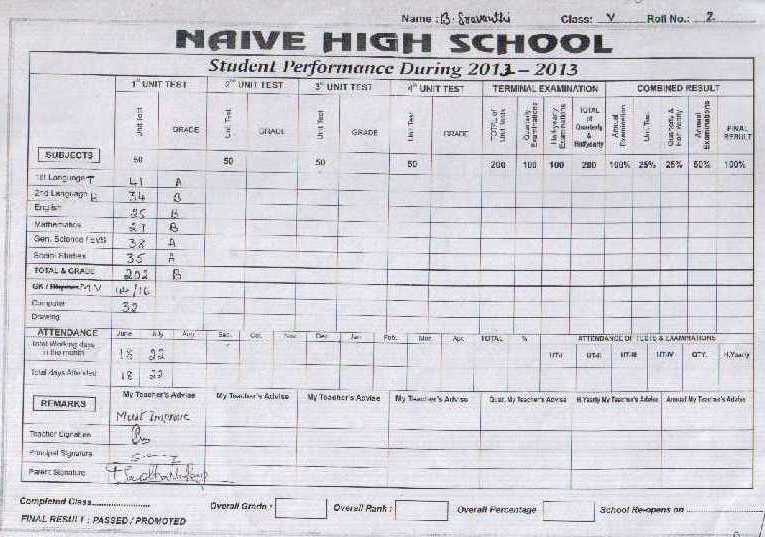 Name : B. Sravanthi Class: V Roll No.: 2.
NAIVE HIGH SCHOOL
Student Performance During 2012 – 2013
1st UNIT TEST 2nd UNIT TEST 3rd UNIT TEST 4th UNIT TEST TERMINAL EXAMINATION COMBINED RESULT
SUBJECTS Unit Test GRADE Unit Test GRADE Unit Test GRADE Unit Test GRADE TOTAL of Unit Tests Quarterly Examinations Half-yearly Examinations TOTAL of Quarterly & Halfyearly Annual Examination Unit Test Quarterly & Half Yearly Annual Examinations FINAL RESULT
50 50 50 50 200 100 100 200 100% 25% 25% 50% 100%
1st Language T 41 A
2nd Language 34 B
English 25 B
Mathematics 29 B
Gen. Science / EVS 38 A
Social Studies 35 A
TOTAL & GRADE 202 B
GK / M.V 14/16
Computer 32
Drawing
ATTENDANCE June July Aug Sep. Oct. Nov. Dec Jan. Feb. Mar. Apr. TOTAL % ATTENDANCE OF TESTS & EXAMINATIONS
Total Working days in the month 18 22 UT-I UT-II UT-III UT-IV QTY. H.Yearly
Total days Attended 18 22
REMARKS My Teacher's Advise My Teacher's Advise My Teacher's Advise My Teacher's Advise Quar. My Teacher's Advise H.Yearly My Teacher's Advise Annual My Teacher's Advise
Must Improve
Teacher Signature
Principal Signature
Parent Signature
Completed Class.................... Overall Grade : Overall Rank : Overall Percentage School Re-opens on ....................
FINAL RESULT : PASSED / PROMOTED